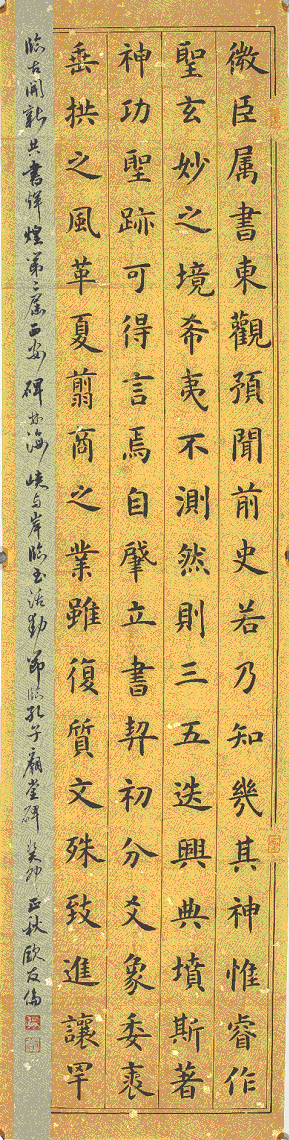 微臣属書東觀預聞前史若乃知幾其神惟睿作
聖玄妙之境希夷不測然則三五迭興典墳斯著
神功聖跡可得言焉自肇立書契初分爻象委裘
垂拱之風革夏翦商之業雖復質文殊致進讓罕
临古开新丝书辉煌第二届西安碑林海峡两岸临书活动节临孔子廟堂碑癸卯正秋欧友倫